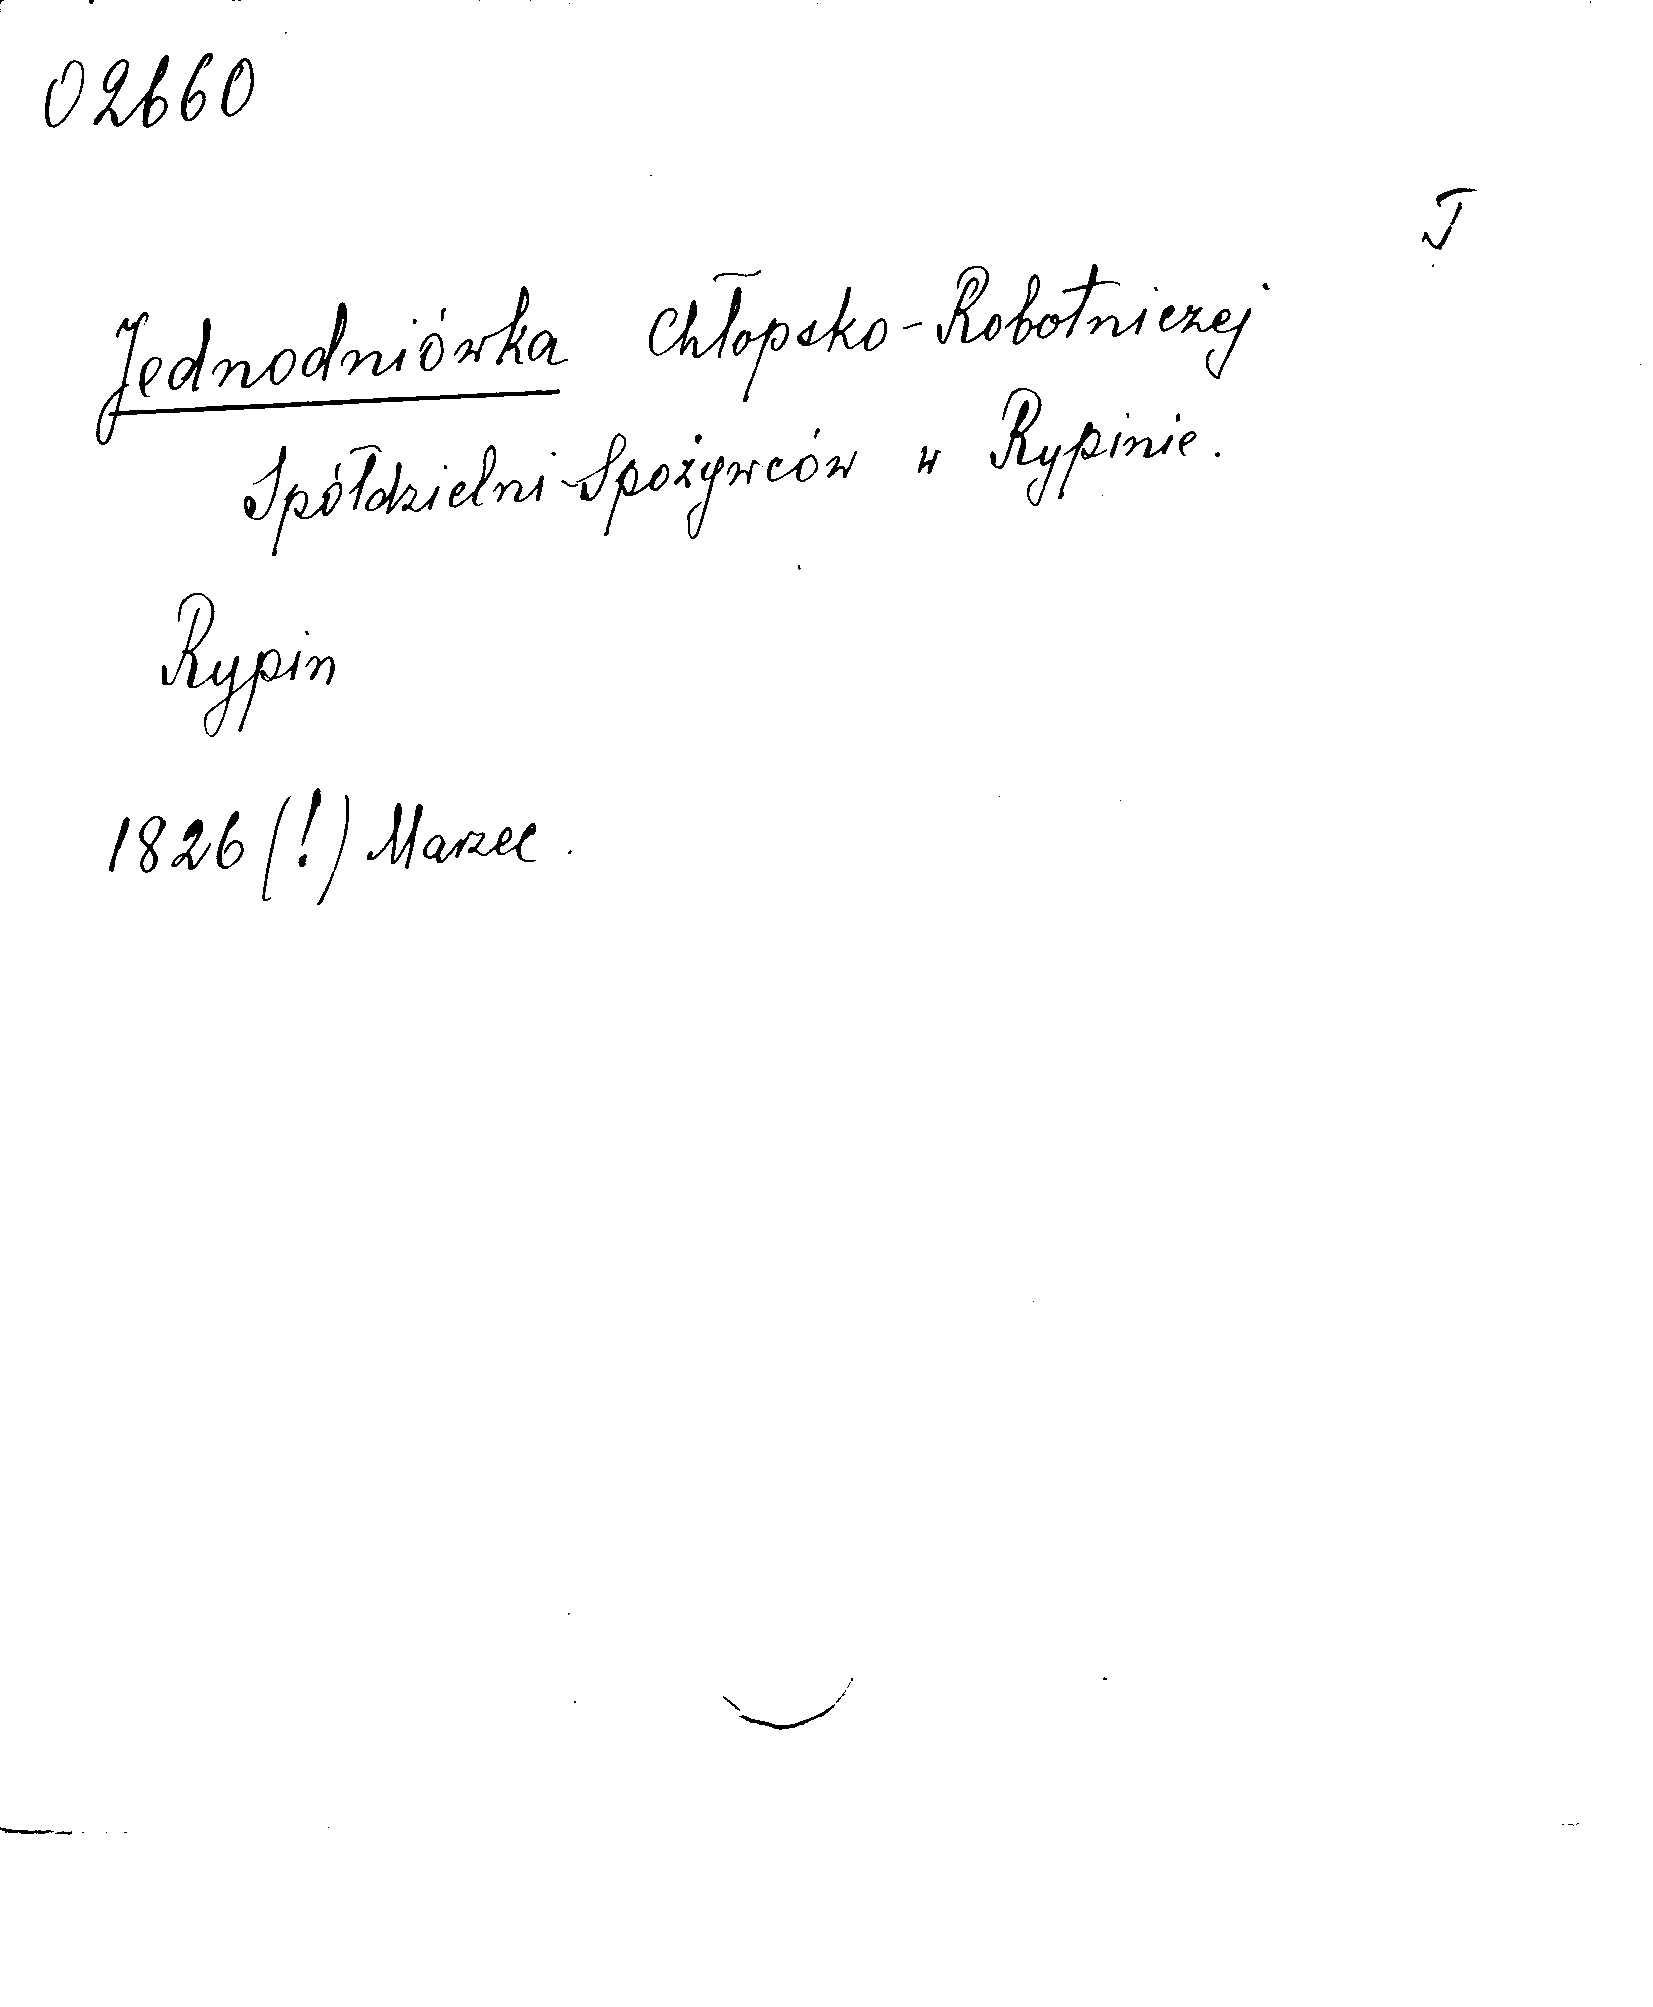 02660
J
Jednodniówka Chłopsko-Robotniczej
Spółdzielni Spożywców w Rypinie.
Rypin
1826 (!) Marzec.